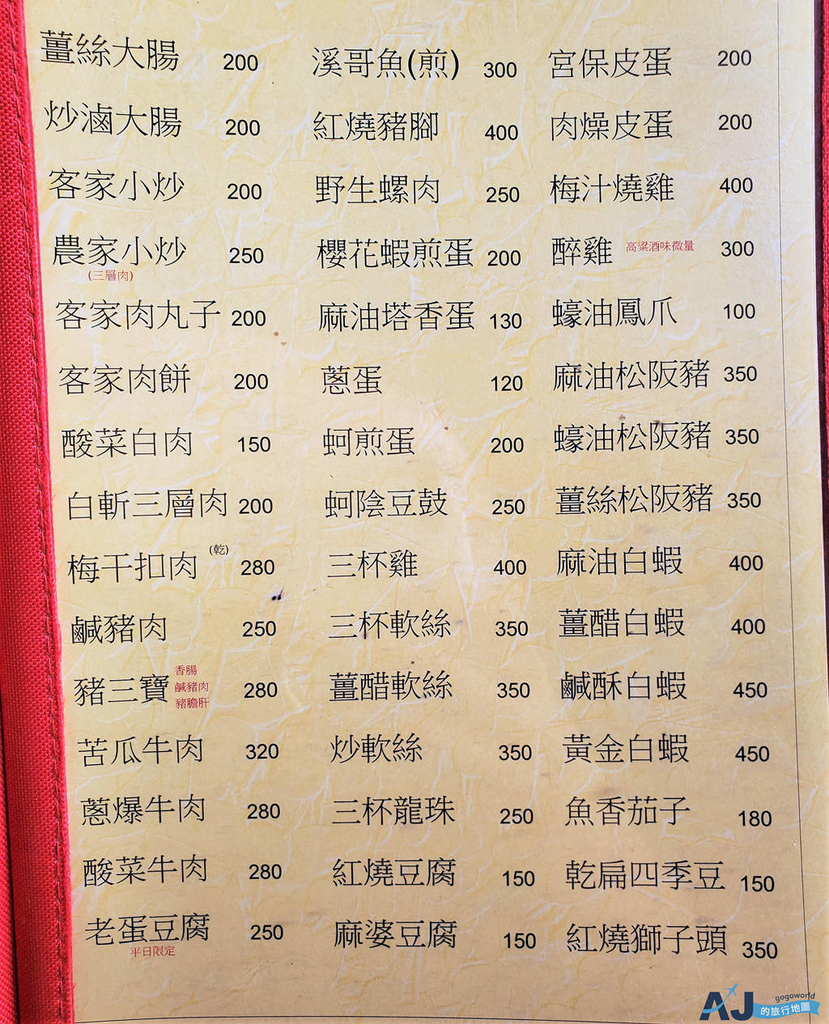 薑絲大腸 200
炒滷大腸 200
客家小炒 200
農家小炒 250
(三層肉)
客家肉丸子 200
客家肉餅 200
酸菜白肉 150
白斬三層肉 200
梅干扣肉 (乾) 280
鹹豬肉 250
豬三寶 香腸 鹹豬肉 豬膽肝 280
苦瓜牛肉 320
蔥爆牛肉 280
酸菜牛肉 280
老蛋豆腐 250
平日限定
溪哥魚(煎) 300
紅燒豬腳 400
野生螺肉 250
櫻花蝦煎蛋 200
麻油塔香蛋 130
蔥蛋 120
蚵煎蛋 200
蚵陰豆鼓 250
三杯雞 400
三杯軟絲 350
薑醋軟絲 350
炒軟絲 350
三杯龍珠 250
紅燒豆腐 150
麻婆豆腐 150
宮保皮蛋 200
肉燥皮蛋 200
梅汁燒雞 400
醉雞 高粱酒味微量 300
蠔油鳳爪 100
麻油松阪豬 350
蠔油松阪豬 350
薑絲松阪豬 350
麻油白蝦 400
薑醋白蝦 400
鹹酥白蝦 450
黃金白蝦 450
魚香茄子 180
乾扁四季豆 150
紅燒獅子頭 350
AJ gogoworld
的旅行地圖